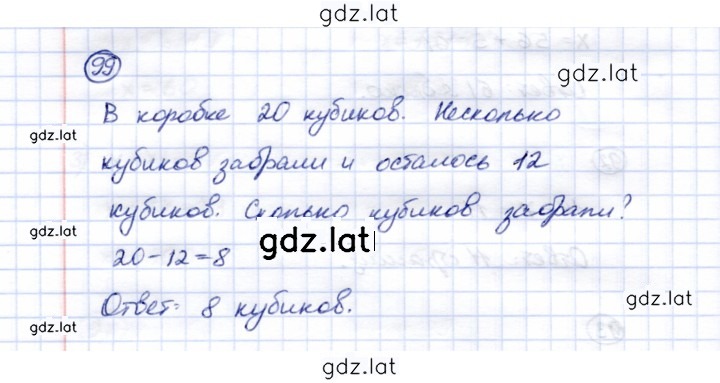 gdz.lat
99
gdz.lat
В коробке 20 кубиков. Несколько
gdz.lat
кубиков забрали и осталось 12
кубиков. Сколько кубиков забрали?
gdz.lat
gdz.lat
20-12=8
gdz.lat
Ответ: 8 кубиков.
gdz.lat
gdz.lat